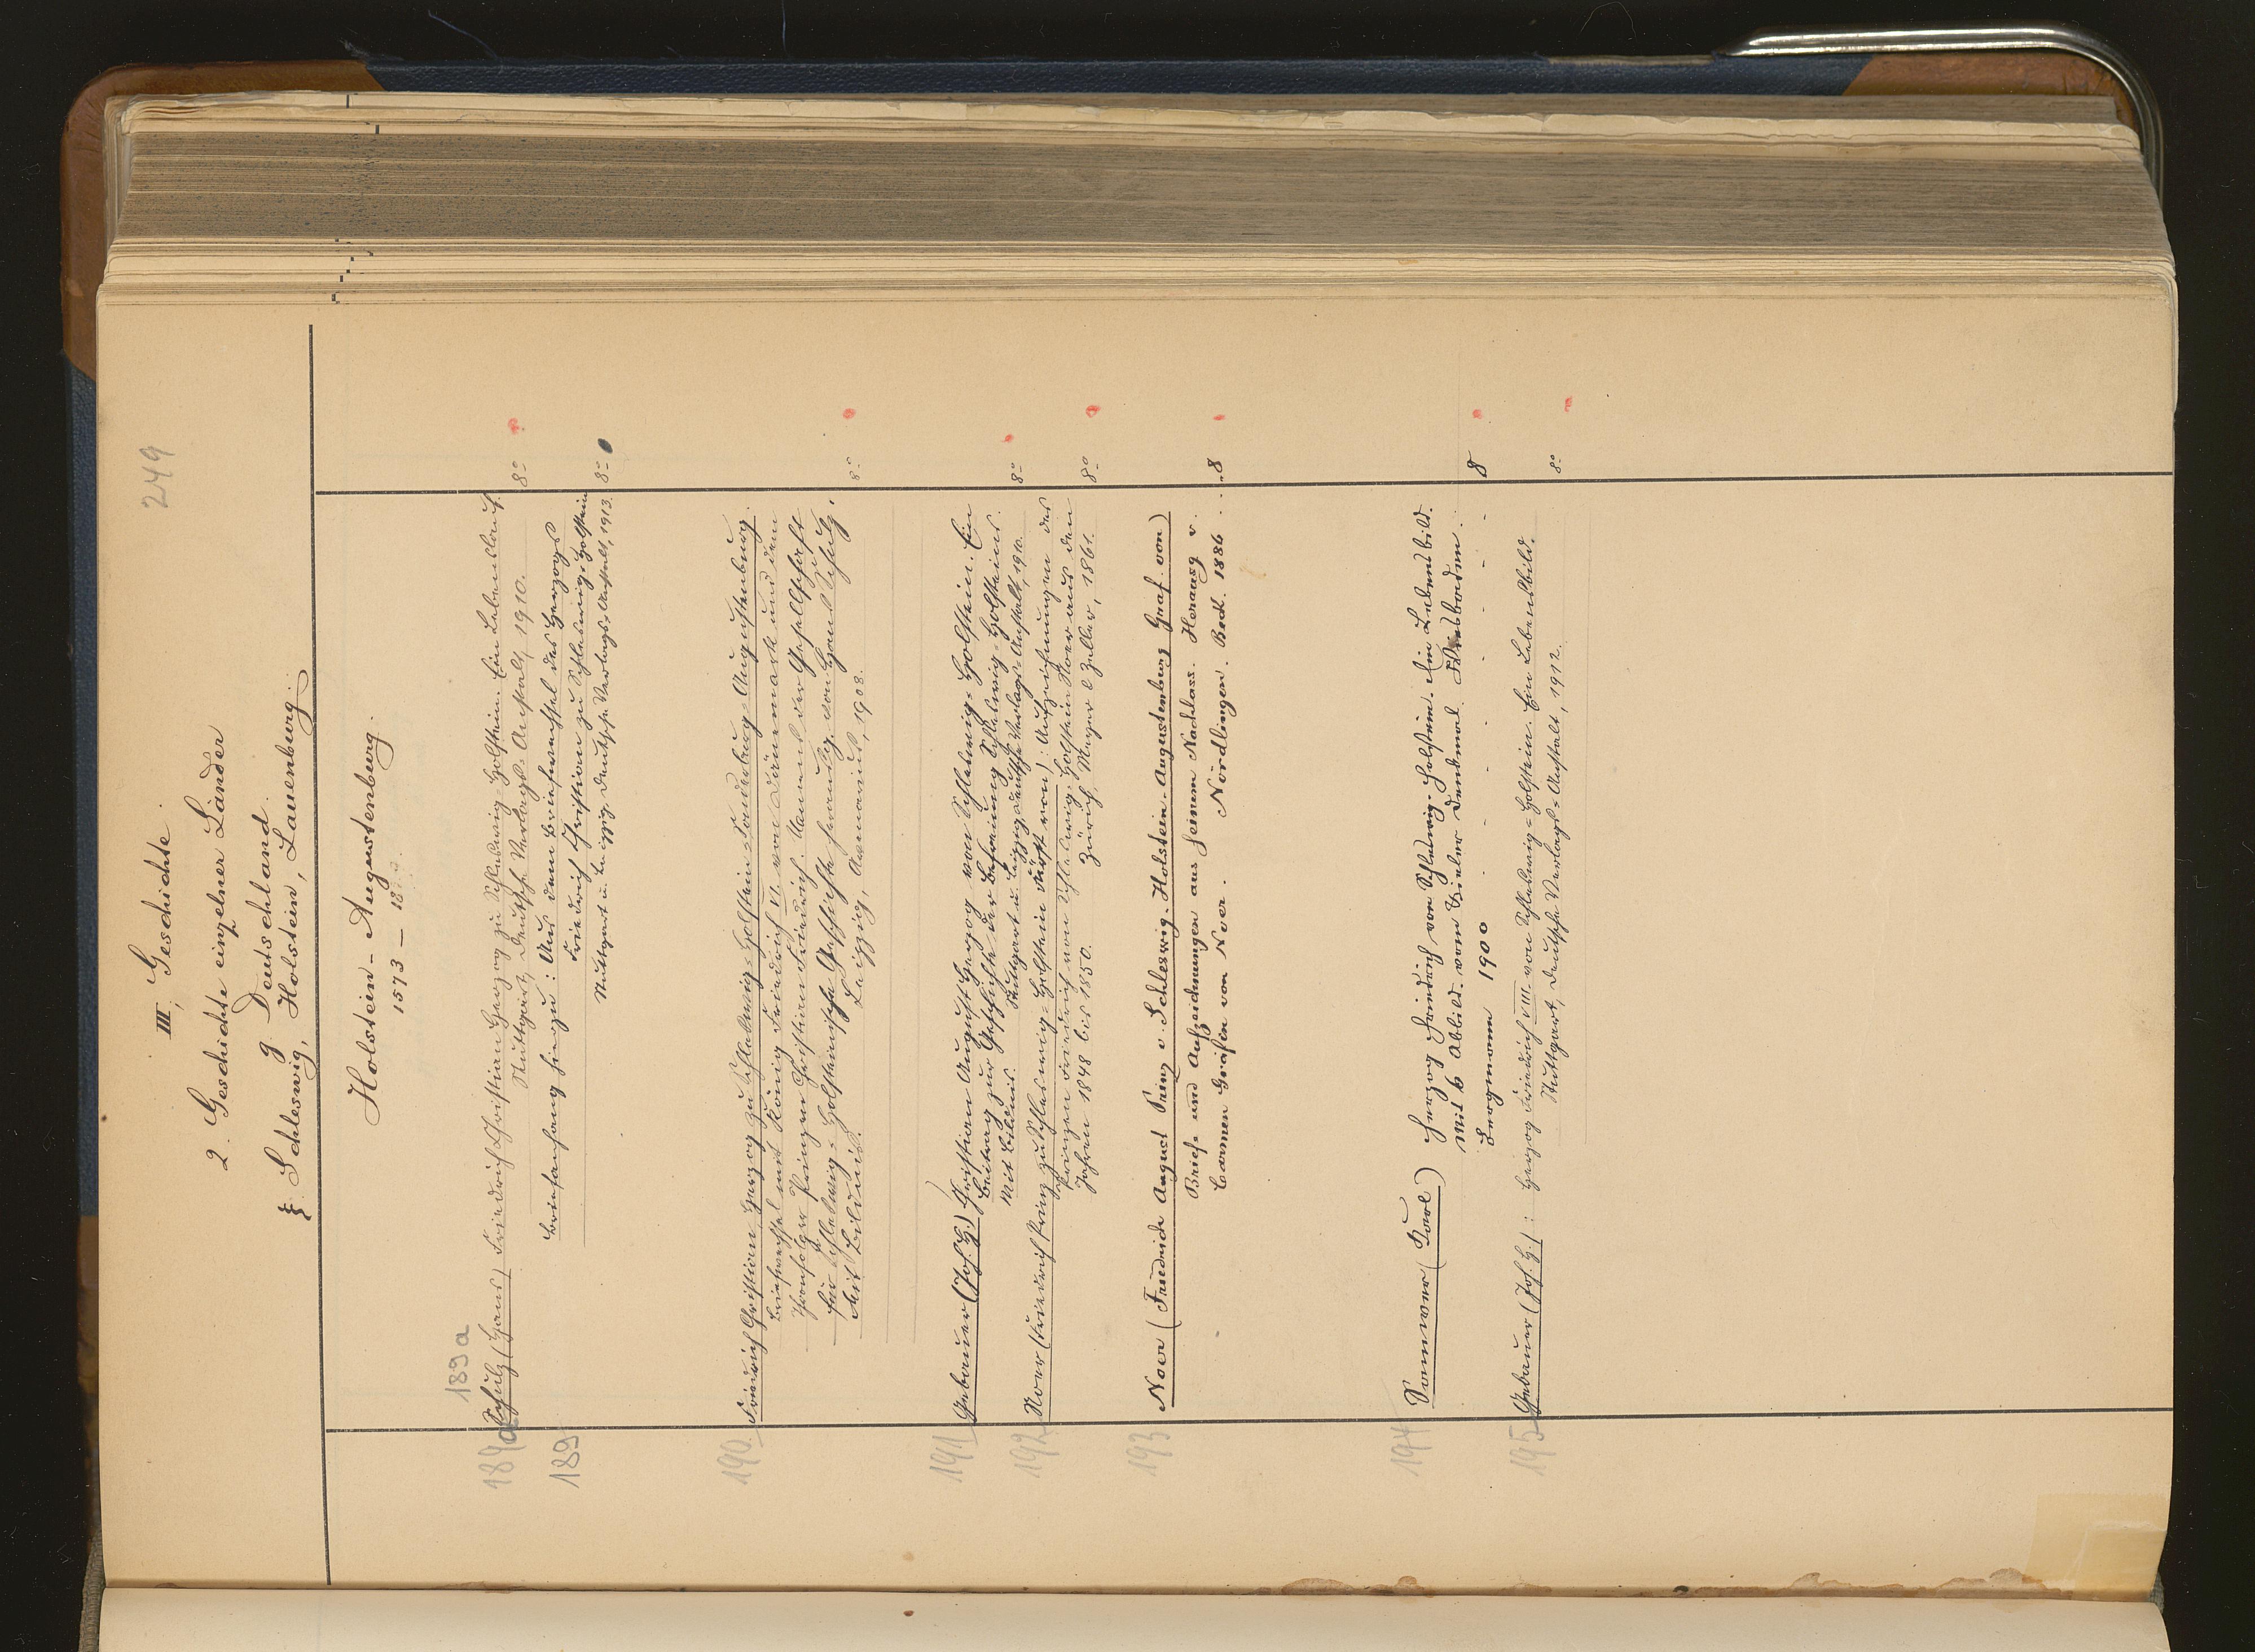 249
III, Geschichte.
2. Geschichte einzelner Länder
g. Deutschland.
ξ. Schleswig, Holstein, Lauenburg.
Holstein-Augustenburg.
1573 – 18
189a
189a Schulz (Hans) Friedrich Christian Herzog zu Schleswig-Holstein. Ein Lebenslauf.
Stuttgart, Deutsche Verlags-Anstalt, 1910. 8°
189 Briefanhang hiezu: Aus dem Briefwechsel des Herzogs
Friedrich Christian zu Schleswig-Holstein
Stuttgart u. Leipzig, Deutsche Verlags-Anstalt, 1913. 8°
190. Friedrich Christian, Herzog zu Schleswig-Holstein-Sonderburg-Augustenburg.
Briefwechsel mit König Friedrich VI. von Dänemark und dem
Thronfolger Prinzen Christian Friedrich. Namens der Gesellschaft
für Schleswig-Holsteinische Geschichte herausg. von Hans Schulz.
Mit Bildnis. Leipzig, 1908. 8°
191 Gebauer (Joh. H.) Christian August Herzog von Schleswig-Holstein. Ein
Beitrag zur Geschichte der Befreiung Schleswig-Holsteins.
Mit Bildnis. Stuttgart u. Leipzig, Deutsche Verlags-Anstalt, 1910. 8°
192 Noer (Friedrich Prinz zu Schleswig-Holstein Fürst von): Aufzeichnungen des
Prinzen Friedrich von Schleswig-Holstein-Noer aus den
Jahren 1848 bis 1850. Zürich, Meyer & Zeller, 1861. 8°
193 Noer (Friedrich August Prinz v. Schleswig-Holstein-Augustenburg Graf von)
Briefe und Aufzeichnungen aus seinem Nachlass. Herausg v.
Carmen Gräfin von Noer. Nördlingen. Beck. 1886 . . 8
194 Samwer (Karl) Herzog Friedrich von Schleswig-Holstein. Ein Lebensbild.
Mit 6 Abbild. vom Kieler Denkmal. Wiesbaden.
Bergmann 1900 8
195 Gebauer (Joh. H.): Herzog Friedrich VIII. von Schleswig-Holstein. Ein Lebensbild.
Stuttgart, Deutsche Verlags-Anstalt, 1912. 8°